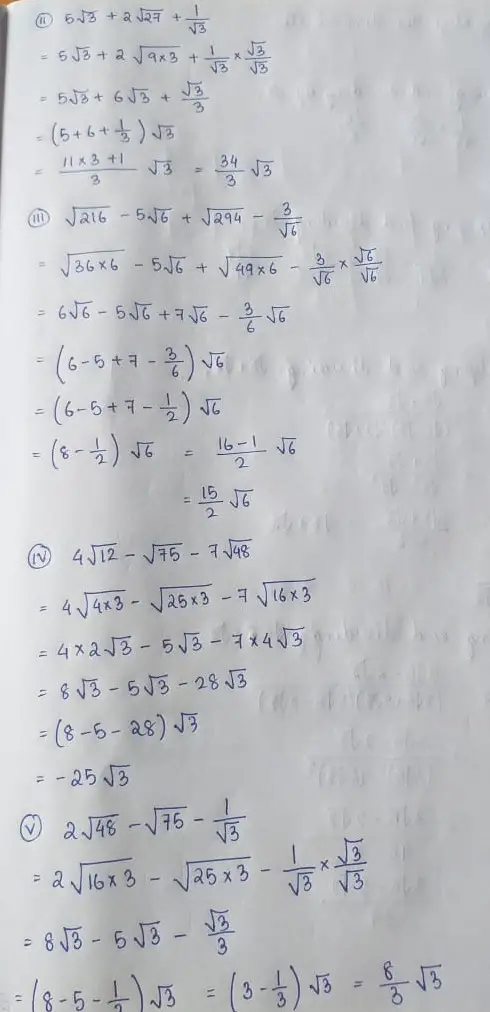 (ii) 5√3 + 2√27 + 1/√3
= 5√3 + 2√(9×3) + 1/√3 × √3/√3
= 5√3 + 6√3 + √3/3
= (5+6+1/3)√3
= (11×3+1)/3 √3 = 34/3 √3
(iii) √216 - 5√6 + √294 - 3/√6
= √(36×6) - 5√6 + √(49×6) - 3/√6 × √6/√6
= 6√6 - 5√6 + 7√6 - 3/6 √6
= (6-5+7-3/6)√6
= (6-5+7-1/2)√6
= (8-1/2)√6 = (16-1)/2 √6
= 15/2 √6
(iv) 4√12 - √75 - 7√48
= 4√(4×3) - √(25×3) - 7√(16×3)
= 4×2√3 - 5√3 - 7×4√3
= 8√3 - 5√3 - 28√3
= (8-5-28)√3
= -25√3
(v) 2√48 - √75 - 1/√3
= 2√(16×3) - √(25×3) - 1/√3 × √3/√3
= 8√3 - 5√3 - √3/3
= (8-5-1/3)√3 = (3-1/3)√3 = 8/3 √3